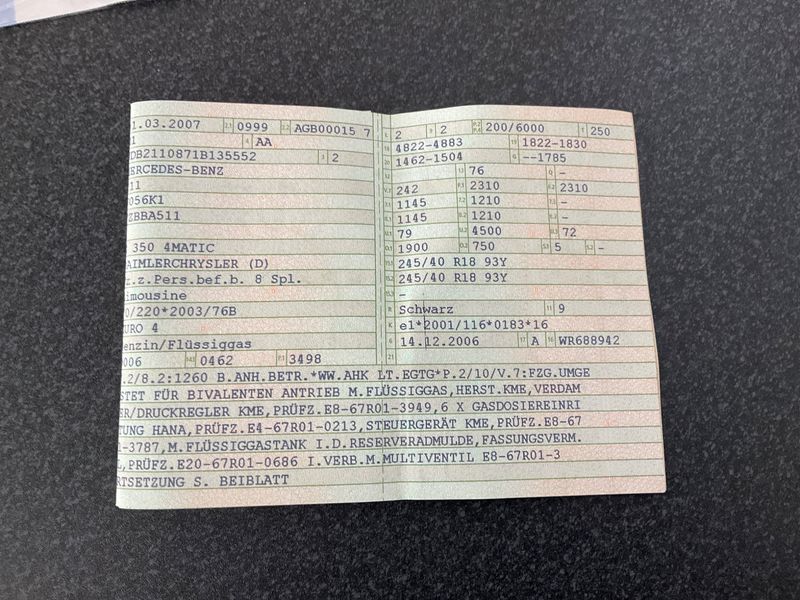 1.03.2007 2.1 0999 2.2 AGB00015 7
1 4 AA
DB2110871B135552 3 2
ERCEDES-BENZ
11
056K1
ZBBA511
350 4MATIC
AIMLERCHRYSLER (D)
z.z.Pers.bef.b. 8 Spl.
imousine
0/220*2003/76B
EURO 4
enzin/Flüssiggas
006 0462 P.1 3498
L 2 9 2 P.2 P.4 200/6000 T 250
18 4822-4883 19 1822-1830
20 1462-1504 G --1785
12 - 13 76 Q -
V.7 242 F.1 2310 F.2 2310
7.1 1145 7.2 1210 7.3 -
8.1 1145 8.2 1210 8.3 -
U.1 79 U.2 4500 U.3 72
O.1 1900 O.2 750 S.1 5 S.2 -
15.1 245/40 R18 93Y
15.2 245/40 R18 93Y
15.3 -
R Schwarz 11 9
K e1*2001/116*0183*16
6 14.12.2006 17 A 16 WR688942
21
.2/8.2:1260 B.ANH.BETR.*WW.AHK LT.EGTG*P.2/10/V.7:FZG.UMGE
STET FÜR BIVALENTEN ANTRIEB M.FLÜSSIGGAS,HERST.KME,VERDAM
ER/DRUCKREGLER KME,PRÜFZ.E8-67R01-3949,6 X GASDOSIEREINRI
TUNG HANA,PRÜFZ.E4-67R01-0213,STEUERGERÄT KME,PRÜFZ.E8-67
1-3787,M.FLÜSSIGGASTANK I.D.RESERVERADMULDE,FASSUNGSVERM.
L,PRÜFZ.E20-67R01-0686 I.VERB.M.MULTIVENTIL E8-67R01-3
RTSETZUNG S. BEIBLATT